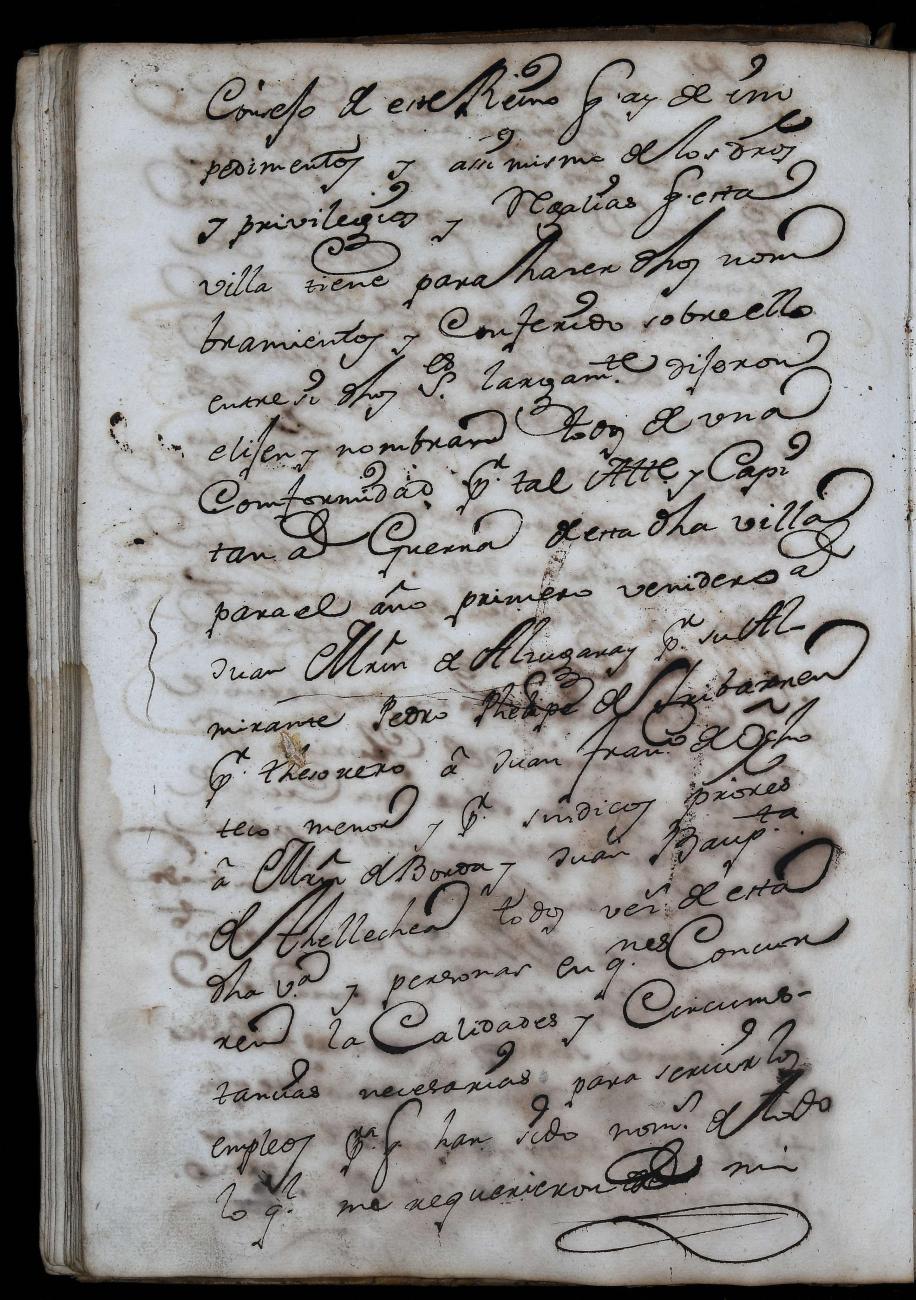 Consejo de este Reino q.e ay de im
pedimentos y assi mismo de los dros
y privilegios y Regalias q.e esta
villa tiene para hacer dhos nom
bramientos y Conferido sobre ello
entre si dhos S.es largam.te dijeron
elijen y nombran todos de una
Comformidad p.r tal Alc.te y Capi
tan a Guerra de esta dha villa
para el año primero venidero a
Juan Mrñ de Alzugaray p.r su Al-
mirante Pedro Phelipe de Iribarren
p.r thesorero â Juan Fran.co de Ocho
teco menor y p.r sindicos priores
â Mrñ de Borda y Juan Baup.ta
de Thellechea todos veº de esta
dha v.a y personas en q.nes Concur
ren la Calidades y Circums-
tancias necesarias para servir los
empleos p.a q. han sido nom.s de todo
lo q.l me requirieron mi